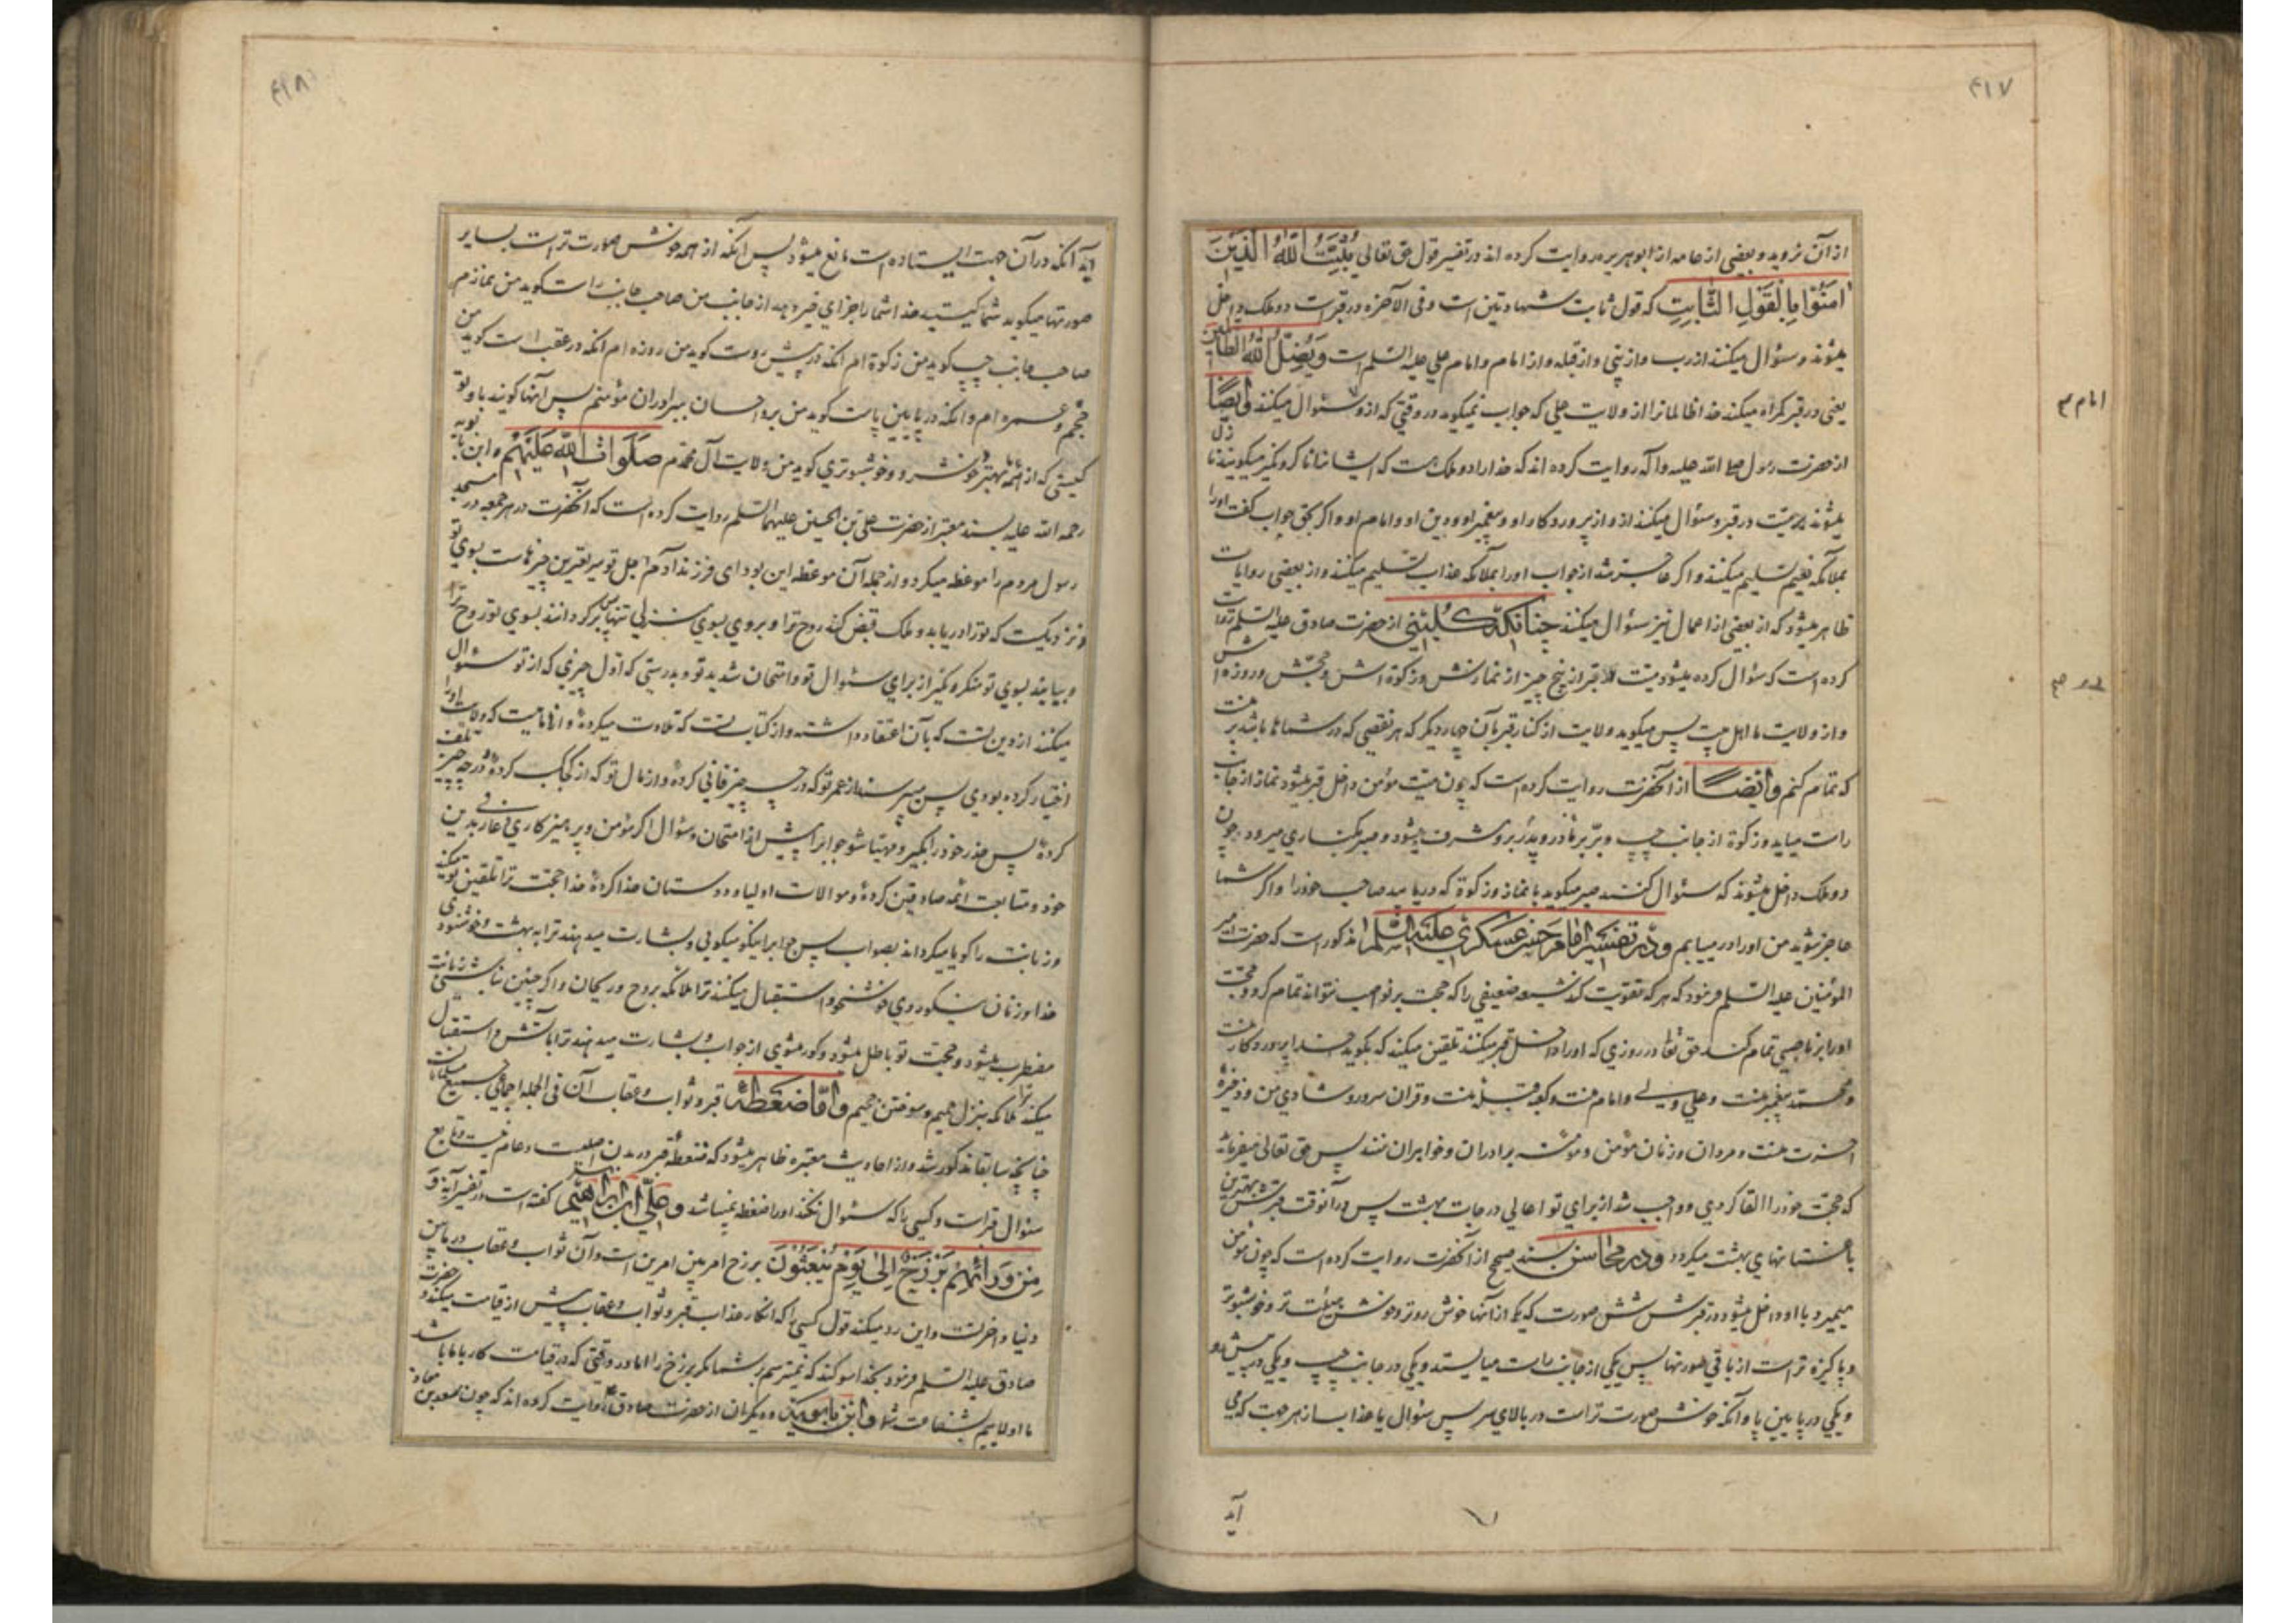 ۴۱۷
از آن نروید و بعضی از عامه از ابو هریره روایت کرده اند در تفسیر قول حق تعالی یُثَبِّتُ اللّٰهُ الَّذینَ
امَنُوْا بِالْقَوْلِ الثّابِتِ که قول ثابت شهادتین است و فی الآخرة در قبر است دو ملک داخل
میشوند و سئوال میکنند از رب و از نبی و از قبله و از امام و امام علی علیه السلم است وَیُضِلُّ اللّٰهُ الظّالِمینَ
یعنی در قبر کمراه میکند خدا ظالمانرا از ولایت علی که جواب نمیکوید در وقتی که ازو سئوال میکنند وایضًا
از حضرت رسول صلی الله علیه وآله روایت کرده اند که خدا را دو ملک هست که ایشانرا ناکر و نکیر میکویند نازل
میشوند بر میّت در قبر و سئوال میکنند ازو از پروردکار او و پیغمبر او و دین او و امام او و اکر بحق جواب کفت اورا
بملائکه نعیم تسلیم میکنند و اکر عاجز شد از جواب اورا بملائکه عذاب تسلیم میکنند و از بعضی روایات
ظاهر میشود که از بعضی از اعمال نیز سئوال میکنند چنانکه کلینی از حضرت صادق علیه السلم روایت
کرده است که سؤال کرده میشود میّت در قبر از پنج چیز از نمازش و زکوة اش و حجّش و روزه اش
و از ولایت ما اهل بیت پس میکوید ولایت از کنار قبر بآن چهار دیکر که هر نقصی که در شماها باشد بر منست
که تمام کنم وایضًا از آنحضرت روایت کرده است که چون میّت مؤمن داخل قبر میشود نماز از جانب
راست میاید و زکوة از جانب چپ و برّ پدر و مادر برو مشرف میشود و صبر بکناری میرود چون
دو ملک داخل میشوند که سئوال کنند صبر میکوید با نماز و زکوة که دریابید صاحب خودرا و اکر شما
عاجز شوید من اورا در میابم ودر تفسیر امام حسن عسکری علیه السلم مذکور است که حضرت امیر
المؤمنین علیه السلم فرمود که هر که تقویت کند شیعه ضعیفی را که حجت بر نواصب نتواند تمام کرد و حجّت
اورا بر ناصبی تمام کند حق تعالی در روزی که اورا داخل قبر میکنند تلقین میکند که بکوید خدا پروردکار منست
و محمّد پیغمبر منست و علی ولی و امام منست و کعبه قبله منست و قران سرور و شادی من و ذخیرهٔ
آخرت منست و مردان و زنان مؤمن و مؤمنه برادران و خواهران منند پس حق تعالی میفرماید
که حجّت خودرا القا کردی و واجب شد از برای تو اعالی درجات بهشت پس در آنوقت قبرش بهترین
باغستانهای بهشت میکردد ودر محاسن بسند صحیح از آنحضرت روایت کرده است که چون مؤمن
میمیرد با او داخل میشود در قبرش شش صورت که یکی از آنها خوش روتر و خوش هیئت تر و خوشبوتر
و پاکیزه تر است از باقی صورتها پس یکی از جانب راست میایستد و یکی در جانب چپ و یکی در پیش رو
و یکی در پایین پا و آنکه خوش صورت تر است در بالای سر پس سئوال یا عذاب از هر جهت که می
آید
امام ۳
۴۱۸
آید آنکه در آن جهت ایستاده است مانع میشود پس آنکه از همه خوش صورت تر است بسایر
صورتها میکوید شما کیستید خدا شما را جزای خیر دهد از جانب من صاحب جانب راست کوید من نمازم
صاحب جانب چپ کوید من زکوة ام آنکه در پیش روست کوید من روزه ام آنکه در عقب است کوید من
حجّم و عمره ام و آنکه در پایین پاست کوید من برّ و احسان ببرادران مؤمنم پس آنها کویند با و تو
کیستی که از همه بهتر و خوشرو و خوشبوتری کوید من ولایت آل محمدم صَلَواتُ اللّٰهِ عَلَیْهِم و ابن بابویه
رحمه الله علیه بسند معتبر از حضرت علی بن الحسین علیهما السلم روایت کرده است که آنحضرت در هر جمعه در مسجد
رسول مردم را موعظه میکرد و از جمله آن موعظه این بود ای فرزند آدم اجل تو سریعترین چیزهاست بسوی تو
و نزدیکست که تورا دریابد و ملک قبض کند روح ترا و بروی بسوی منزلی تنها پس برکردانند بسوی تو روح ترا
و بیایند بسوی تو منکر و نکیر از برای سئوال تو و امتحان شدید تو و بدرستی که اول چیزی که از تو سئوال
میکنند از دین تست که بآن اعتقاد داشته و از کتاب تست که تلاوت میکرده و از امامیست که ولایت اورا
اختیار کرده بودی پس میپرسند از عمر تو که در چه چیز فانی کردهٔ و از مال تو که از کجا کسب کردهٔ و در چه چیز تلف
کردهٔ پس حذر خودرا بکیر و مهیّا شو جواب را پیش از امتحان و سئوال اکر مؤمن و پرهیزکاری و عارف بدین
خود و متابعت ائمه صادقین کردهٔ و موالات اولیا و دوستان خدا کردهٔ خدا حجّت ترا تلقین تو میکند
و زبانت را کویا میکرداند بصواب پس جواب را نیکو میکوئی و بشارت میدهند ترا به بهشت و خوشنودی
خدا و زنان نیکو روی خوشخو و استقبال میکنند ترا ملائکه بروح و ریحان و اکر چنین نباشی زبانت
مضطرب میشود و حجّت تو باطل میشود و کور میشوی از جواب و بشارت میدهند ترا بآتش و استقبال
میکنند ترا ملائکه بنزل حمیم و سوختن جحیم وامّا ضَغطهٔ قبر و ثواب و عقاب آن فی الجمله اجماعی جمیع مسلمانانست
چنانچه سابقا مذکور شد و از احادیث معتبره ظاهر میشود که ضغطه قبر در بدن اصلیست و عام نیست و تابع
سئوال قبر است و کسی را که سئوال نکنند اورا ضغطه نمیباشد وعلی ابن ابراهیم کفته است در تفسیر آیه وَ
مِنْ وَرَائِهِمْ بَرْزَخٌ اِلٰی یَوْمِ یُبْعَثُوْنَ برزخ امر بین امرین است و آن ثواب و عقاب در مابین
دنیا و آخرتست و این رد میکند قول کسی را که انکار عذاب قبر و ثواب و عقاب پیش از قیامت میکند و حضرت
صادق علیه السلم فرمود بخدا سوکند که نمیترسم بر شما مکر برزخ را اما در وقتی که در قیامت کار با ما باشد
ما اولاییم بشفاعت شما وابن بابویه و دیکران از حضرت صادق ع روایت کرده اند که چون سعد بن معاذ